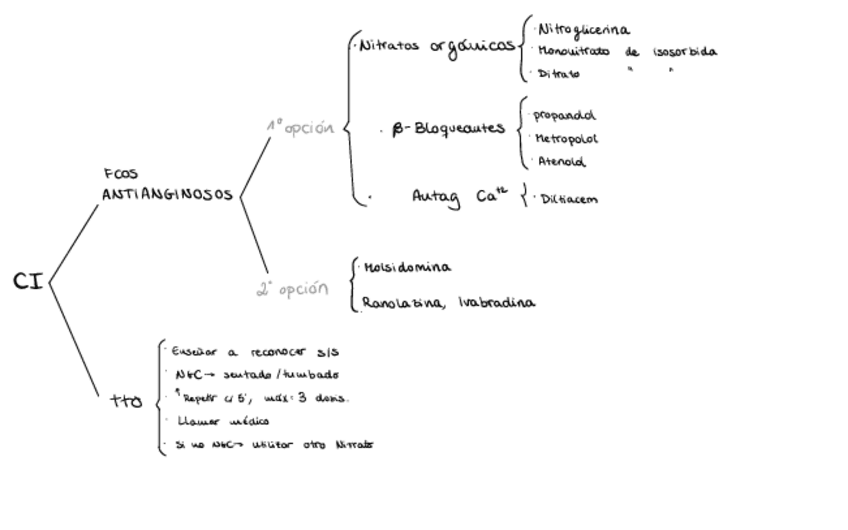 CI
FCOS
ANTIANGINOSOS
1º opción
· Nitratos orgánicos
· Nitroglicerina
· Mononitrato de isosorbida
· Ditrato " "
· β-Bloqueantes
· propanolol
· Metropolol
· Atenolol
· Antag Ca⁺²
· Diltiacem
2º opción
· Molsidomina
Ranolazina, Ivabradina
tto
· Enseñar a reconocer s/s
· NGC → sentado/tumbado
· Repetir c/ 5', máx: 3 dosis.
· Llamar médico
· Si no NGC → utilizar otro Nitrato